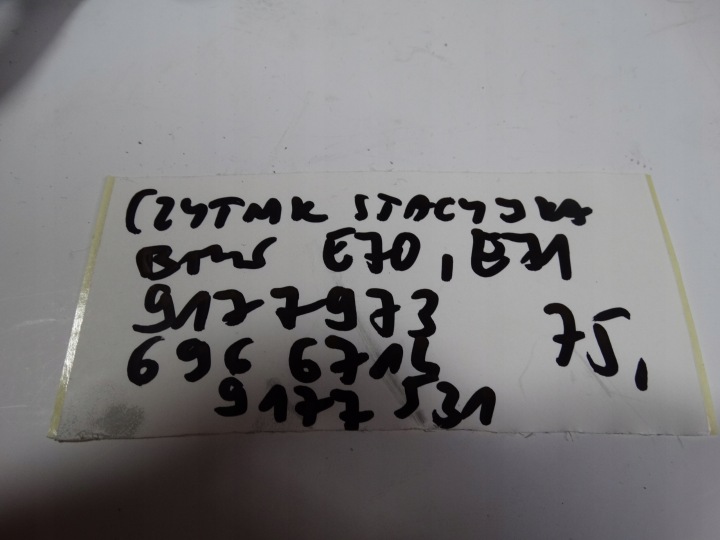 CZYTNIK STACYJKA
BMW E70, E71
9177973
696 6714
75,
9177 531